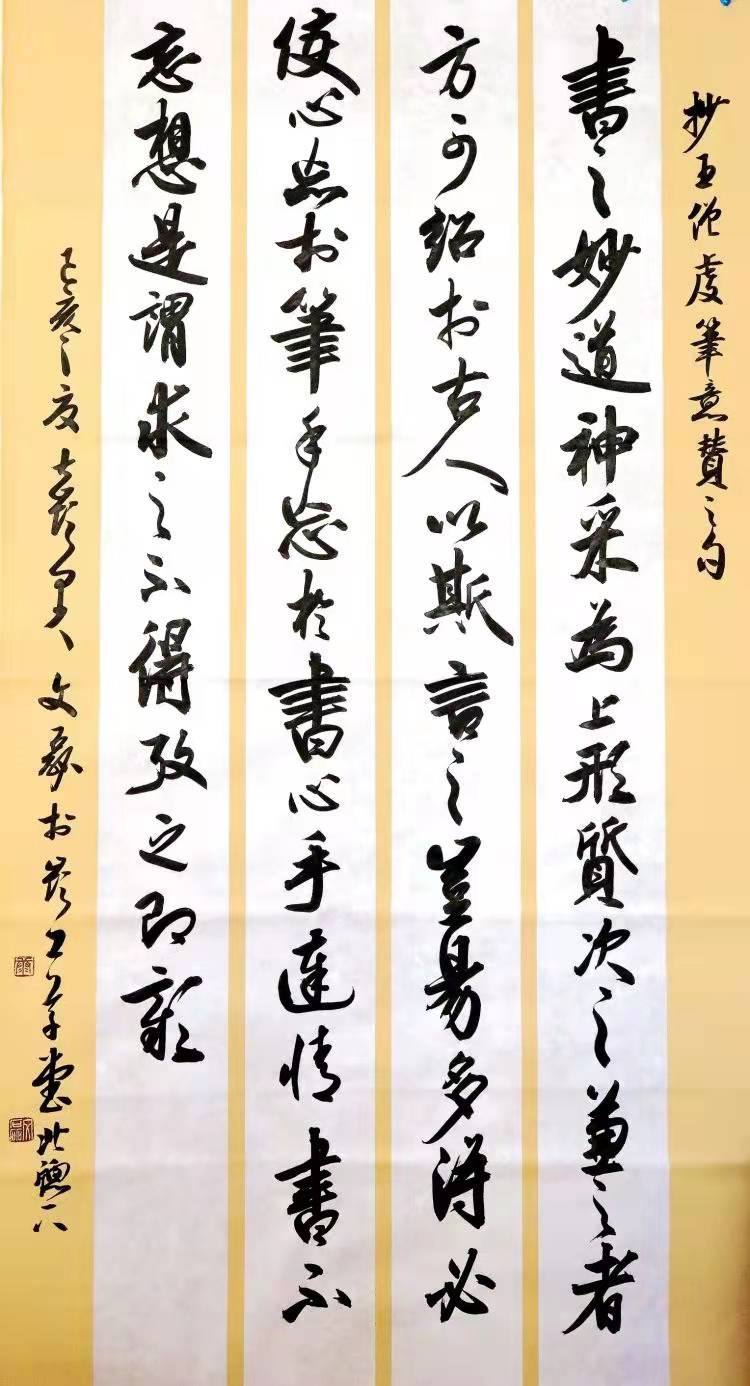 抄王僧虔筆意贊之句
書之妙道神采為上形質次之兼之者
方可紹於古人以斯言之豈易多得必
使心忘於筆手忘於書心手達情書不
忘想是謂求之不得攷之即彰
己亥之夏 文於草堂北窗下